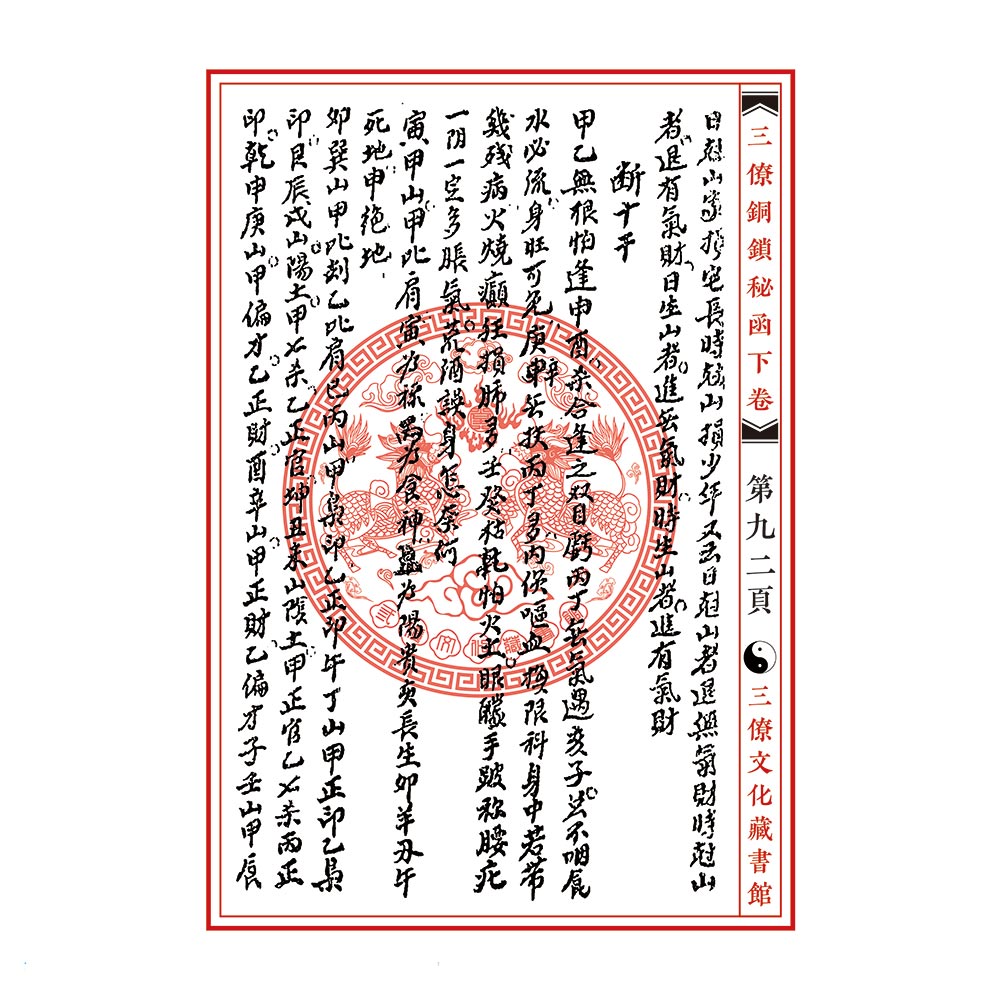 三僚銅鎖秘函下卷
第九二頁
三僚文化藏書館
日尅山家損宅長時尅山損少年又云日尅山者退無氣財時尅山
者退有氣財日生山者進無氣財時生山者進有氣財
断十干
甲乙無根怕逢申酉杀合逢之双目虧丙丁無氣遇亥子 不咽
水必流身旺可免庚辛無扶丙丁多内 嘔血 限科身中若带
幾残病火燒癲狂損肺多壬癸枯乾怕火土眼 手跛 腰疕
一阴一定多脹氣荒酒誤身怎奈何
寅甲山甲比肩寅为禄 为食神 为陽貴亥長生卯羊丑午
死地申绝地
卯巽山甲比刦乙比肩巳丙山甲梟印乙正印午丁山甲正印乙梟
印艮辰戍山陽土甲七杀乙正官坤丑未山陰土甲正官乙七杀丙正
印乾申庚山甲偏才乙正財酉辛山甲正財乙偏才子壬山甲